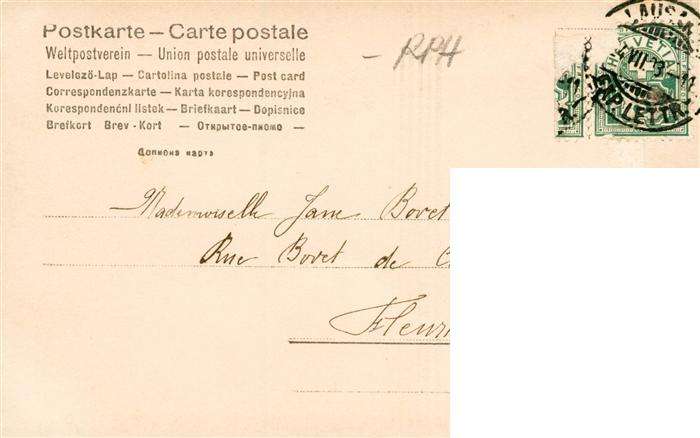 Postkarte — Carte postale
Weltpostverein — Union postale universelle
Levelező-Lap — Cartolina postale — Post card
Correspondenzkarte — Karta korespondencyjna
Korespondenční listek — Briefkaart — Dopisnice
Brefkort Brev-Kort — Открытое-письмо —
Дописна карта
- RPH
LAUS
HELVETI
VII
EXP. LETTR
Mademoiselle Jane Bovet
Rue Bovet de
Fleuri